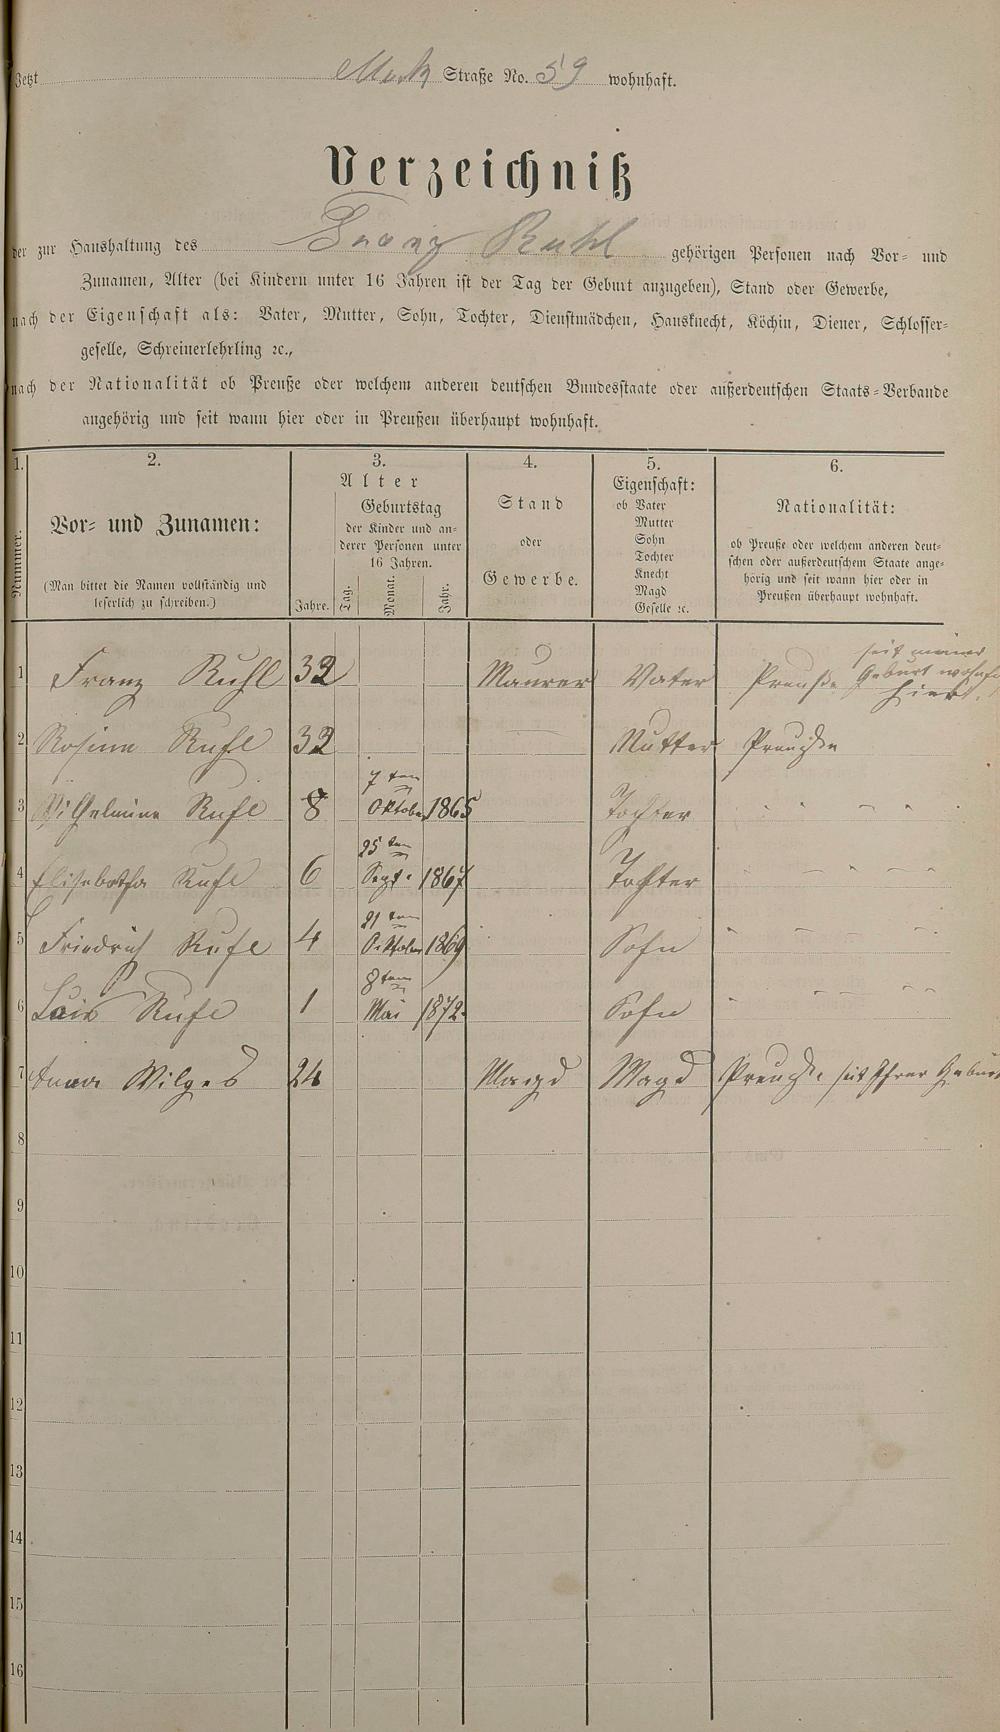 Jetzt Straße No. 59 wohnhaft.
Verzeichniß
der zur Haushaltung des Franz Ruhl gehörigen Personen nach Vor- und
Zunamen, Alter (bei Kindern unter 16 Jahren ist der Tag der Geburt anzugeben), Stand oder Gewerbe,
nach der Eigenschaft als: Vater, Mutter, Sohn, Tochter, Dienstmädchen, Hausknecht, Köchin, Diener, Schlosser-
geselle, Schreinerlehrling ꝛc.,
nach der Nationalität ob Preuße oder welchem anderen deutschen Bundesstaate oder außerdeutschen Staats-Verbande
angehörig und seit wann hier oder in Preußen überhaupt wohnhaft.
1.
Nummer.
2.
Vor- und Zunamen:
(Man bittet die Namen vollständig und
leserlich zu schreiben.)
3.
Alter
Jahre.
Geburtstag
der Kinder und an-
derer Personen unter
16 Jahren.
Tag.
Monat.
Jahr.
4.
Stand
oder
Gewerbe.
5.
Eigenschaft:
ob Vater
Mutter
Sohn
Tochter
Knecht
Magd
Geselle ꝛc.
6.
Nationalität:
ob Preuße oder welchem anderen deut-
schen oder außerdeutschem Staate ange-
hörig und seit wann hier oder in
Preußen überhaupt wohnhaft.
seit meiner
1 Franz Ruhl 32 Maurer Vater Preuße Geburt
hier.
2 Rosina Ruhl 32 Mutter Preußen
7 ten
3 Wilhelmine Ruhl 8 Oktober 1865 Tochter " " " "
25 ten
4 Elisabetha Ruhl 6 Sept. 1867 Tochter " " " "
21 ten
5 Friedrich Ruhl 4 Oktober 1869 Sohn " " " "
8 ten
6 Ruhl 1 Mai 1872 Sohn " " " "
7 Anna Wilges 24 Magd Magd Preuße seit Ihrer Geburt
8
9
10
11
12
13
14
15
16